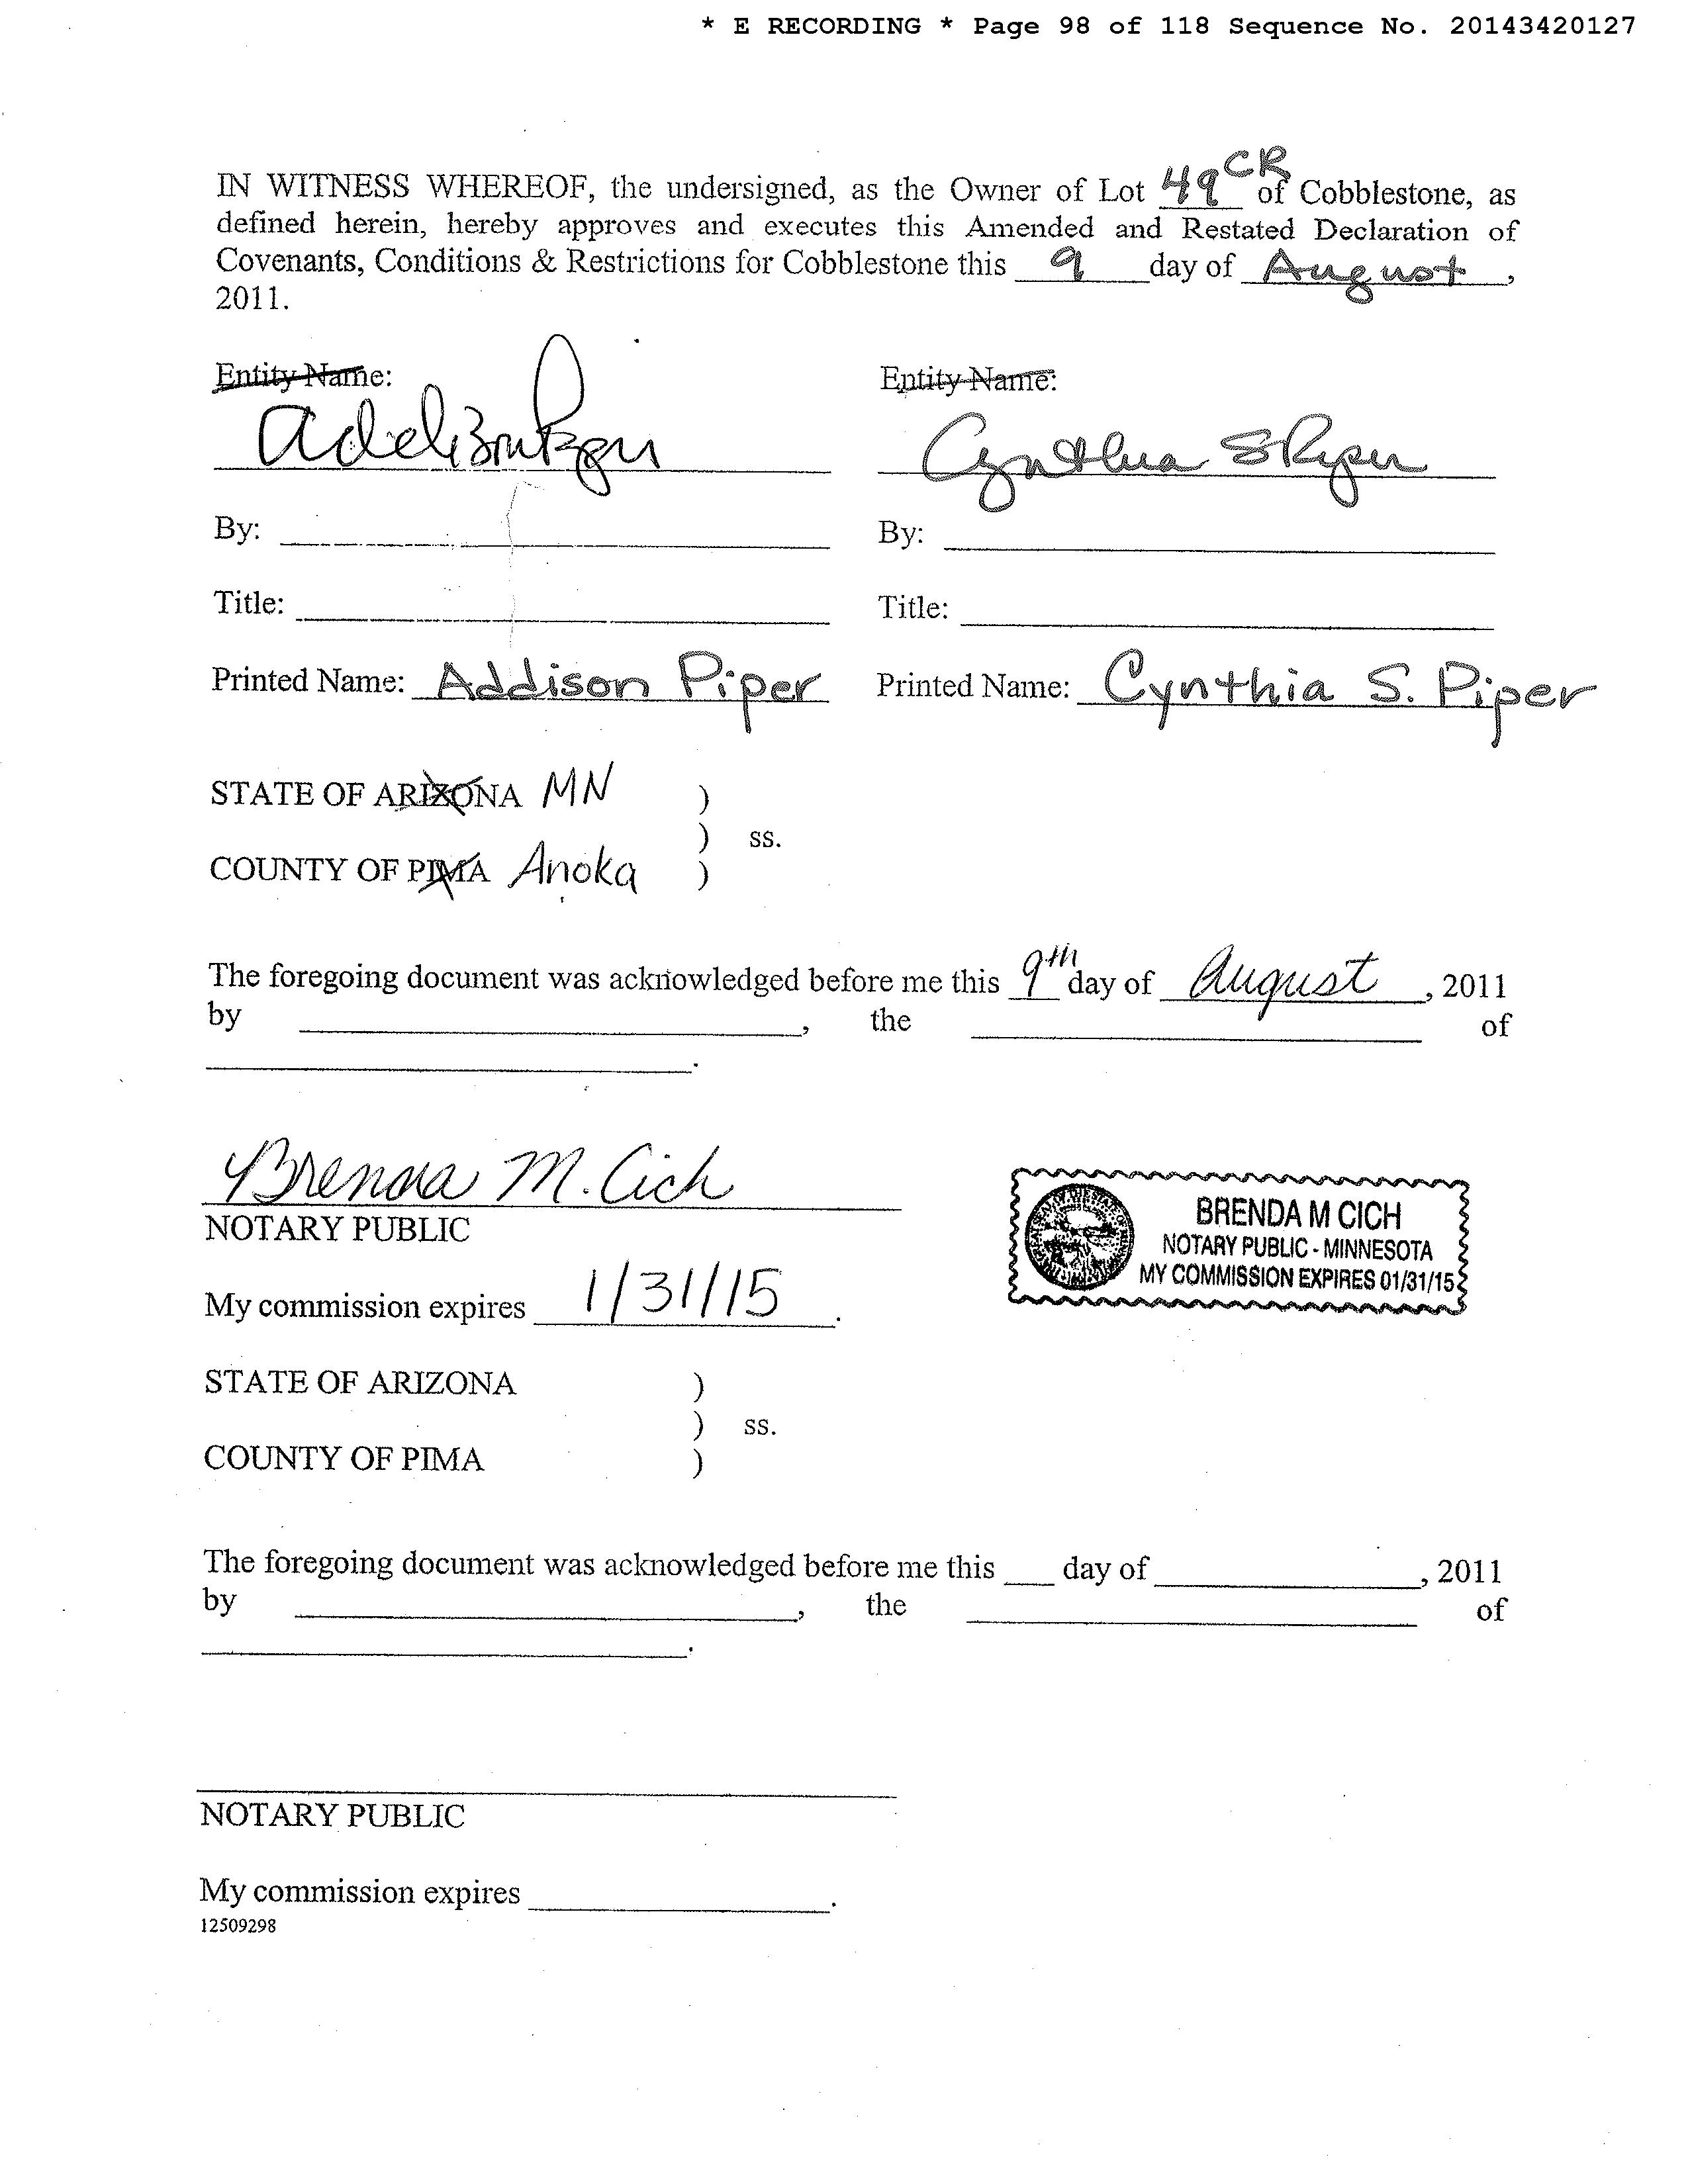 * E RECORDING * Page 98 of 118 Sequence No. 20143420127
IN WITNESS WHEREOF, the undersigned, as the Owner of Lot 49 CR of Cobblestone, as
defined herein, hereby approves and executes this Amended and Restated Declaration of
Covenants, Conditions & Restrictions for Cobblestone this 9 day of August,
2011.
Entity Name: Entity Name:
Cynthia S Piper
By: By:
Title: Title:
Printed Name: Addison Piper Printed Name: Cynthia S. Piper
STATE OF ARIZONA MN )
) ss.
COUNTY OF PIMA Anoka )
The foregoing document was acknowledged before me this 9th day of August, 2011
by , the of
.
Brenda M. Cich
NOTARY PUBLIC
BRENDA M CICH
NOTARY PUBLIC - MINNESOTA
MY COMMISSION EXPIRES 01/31/15
My commission expires 1/31/15.
STATE OF ARIZONA )
) ss.
COUNTY OF PIMA )
The foregoing document was acknowledged before me this day of , 2011
by , the of
.
NOTARY PUBLIC
My commission expires .
12509298